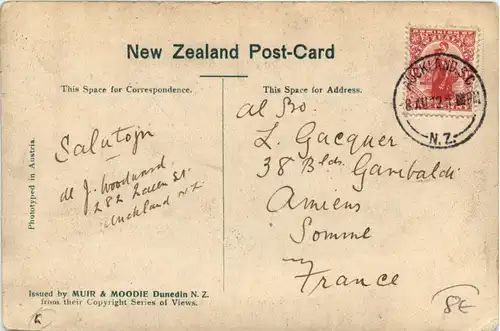 New Zealand Post-Card
This Space for Correspondence.
This Space for Address.
DOMINION OF
AUCKLAND
N.Z.
Salutojn
J. Woodward
282 Queen St
Auckland NZ
al So.
L. Gacquer
38 Blds Garibaldi
Amiens
Somme
France
Phototyped in Austria.
Issued by MUIR & MOODIE Dunedin N. Z.
from their Copyright Series of Views.
8E